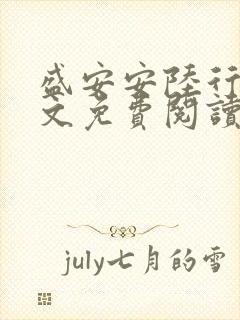 盛安安陸行
文免費閱讀
july七月的雪